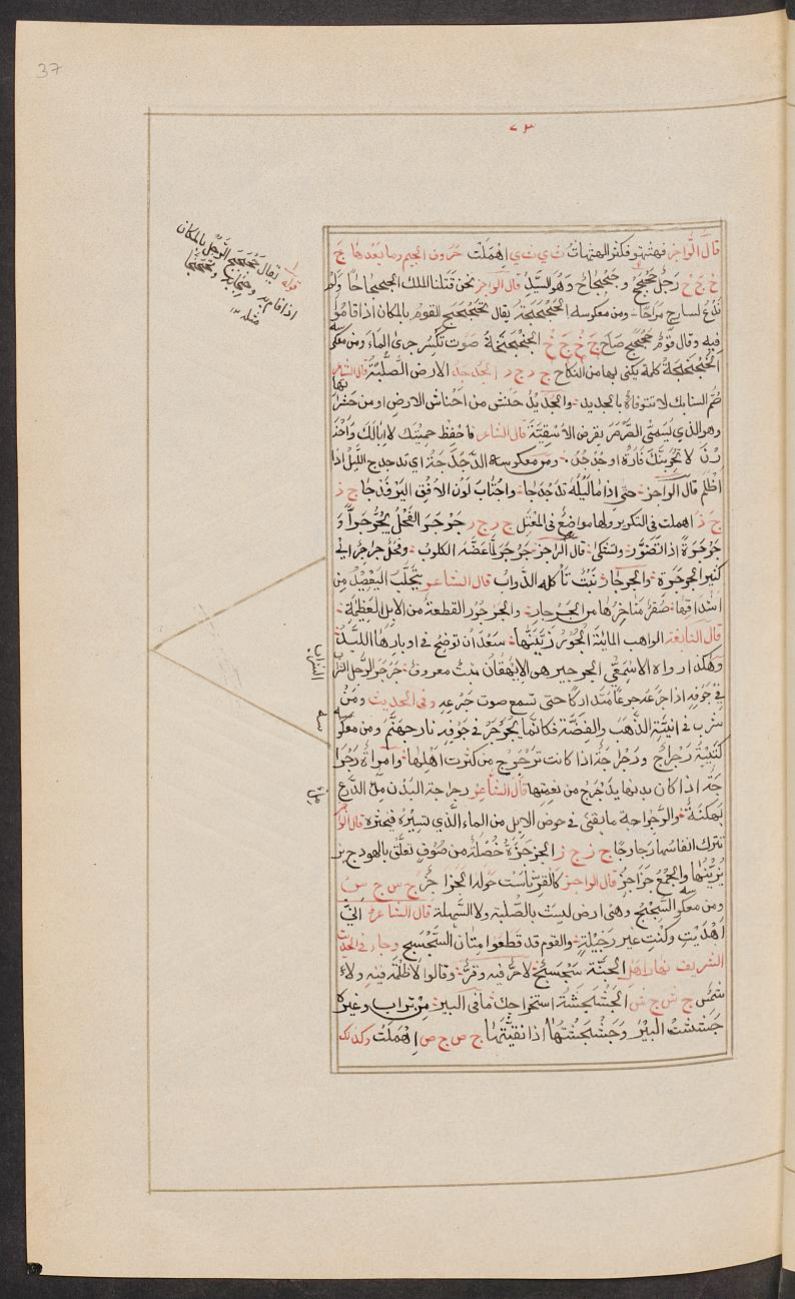 37
٧٣
قال الراجز فهثهثوا فكثر الهثهاث ث ي ث ي اهملت حروف الجيم وما بعدها ج
ح ج ح رجل جحجح وجحجاح وهو السيد قال الراجز نحن قتلنا الملك الجحجاحا ولم
ندع لسارح مراحا ومن معكوسه الحجحجة يقال تحجحج القوم بالمكان اذا قاموا
فيه وقال قوم حجحج صاح ج خ ج خ الجخجخة صوت تكسر جرى الماء ومن معكو
الخجخجة كلمة يكنى بها من النكاح ج د ج د الجدجد الارض الصلبة قال الشاعر
صم السنابك لا تتوقاة بالجديد والجدجد حنش من احناش الارض او من حشرا
وهو الذي يسمى الصرصر يقرض الاسقية قال الشاعر فاحفظ حميتك لا ابالك واحذ
رن لا تخربنك فارة او جدجد ومن معكوسه الدجدجة اي تدجدج الليل اذا
اظلم قال الراجز حتى اذا ما ليله تدجدجا واجتاب لون الافق اليرندجا ج ذ
ج ذ اهملت في التكرير ولها مواضع في المعتل ج ر ج ر جرجر الفحل يجرجر و
جرجرة اذا تضور وتشكى قال الراجز جرجر لما عضه الكلوب وفحل جراجر اي
كثير الجرجرة والجرجار نبت تأكله الدواب قال الشاعر يتحلب اليعضيد من
اشداقها صفر مناخرها من الجرجار والجرجور القطعة من الابل العظيمة
قال النابغة الواهب المائة الجرجور زينها سعدان توضح في اوبارها اللبد
وهكذا رواه الاصمعي الجرجير هو الايهقان نبت معروف جرجر الرجل الشراب
في جوفه اذا جرعه جرعا متداركا حتى تسمع صوت جرعه وفي الحديث ومن
شرب في انية الذهب والفضة فكانما يجرجر في جوفه نار جهنم ومن معكو
كتيبة رجراج ورجراجة اذا كانت ترجرج من كثرت اهلها وامراة رجرا
جة اذا كان بدنها يترجرج من نعمتها قال الشاعر رجراجة البدن ملء الدرع
بهكنة والرجراجة ما يبقى في حوض الابل من الماء الذي تسيره فيخثره قال الراجز
تترك انفاسها رجارجا ج ز ج ز الجزجزة خصلة من صوف تعلق بالهودج يز
يزينها والجمع جزاجز قال الراجز كالقر ناست حوله الجزاجز ج س ج س
ومن معكو السجسج وهي ارض ليست بالصلبة ولا السهلة قال الشاعر انى
اهديت وكنت غير رجيلة والقوم قد قطعوا متان السجسج وجاء في الحديث
الشريف نهار اهل الجنة سجسج لا حر فيه وقر وقالوا لا ظلمة فيه ولا
شمس ج ش ج ش الجشجشة استخراجك ما في البير من تراب وغيره
جشجشت البير وجشجشتها اذا نقيتها ج ص ج ص اهملت وكذلك
قوله يقال تحجحج الرجل بالمكان
اذا قام به
مثله
الشراب